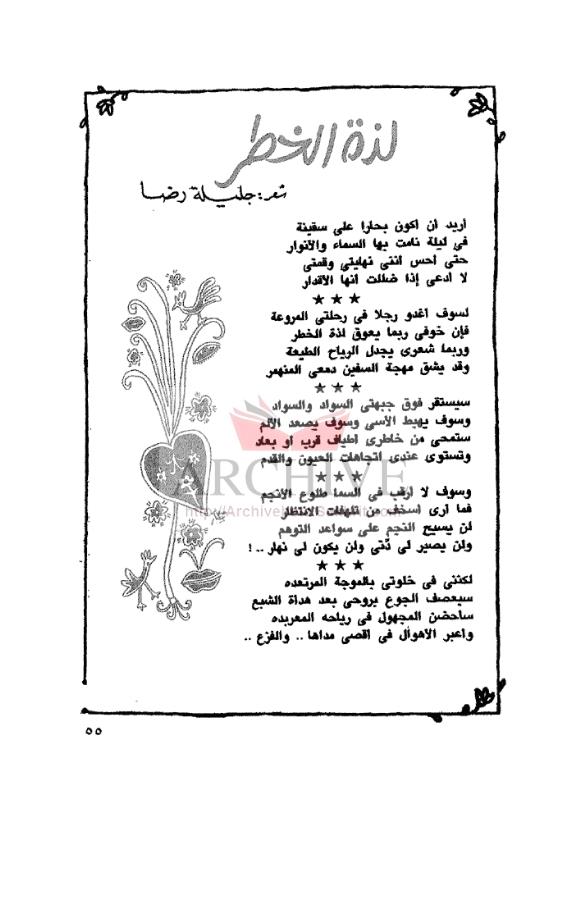 لذة الخطر
شعر : جليلة رضا
أريد أن أكون بحارا على سفينة
فى ليلة نامت بها السماء والأنوار
حتى أحس أننى نهايتى وقمتى
لا أدعى إذا ضللت أنها الأقدار
★ ★ ★
لسوف أغدو رجلا فى رحلتى المروعة
فإن خوفى ربما يعوق لذة الخطر
وربما شعرى يجدل الرياح الطيعة
وقد يشق مهجة السفين دمعى المنهمر
★ ★ ★
سيستقر فوق جبهتى السواد والسواد
وسوف يهبط الأسى وسوف يصعد الألم
ستمحى من خاطرى أطياف قرب أو بعاد
وتستوى عندى اتجاهات العيون والقدم
★ ★ ★
وسوف لا أرقب فى السما طلوع الأنجم
فما أرى أسخف من تلهفات الانتظار
لن يسبح النجم على سواعد التوهم
ولن يصير لى ولن يكون لى نهار .. !
★ ★ ★
لكننى فى خلوتى بالموجة المرتعده
سيعصف الجوع بروحى بعد هدأة الشبع
سأحضن المجهول فى رياحه المعربده
وأعبر الأهوال فى أقصى مداها .. والفزع ..
ARCHIVE
٥٥